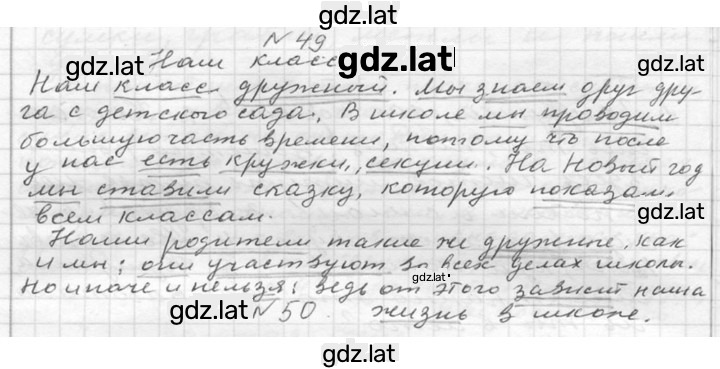 gdz.lat
N 49
gdz.lat
Наш класс
gdz.lat
Наш класс дружный. Мы знаем друг дру-
га с детского сада. В школе мы проводим
большую часть времени, потому что после
у нас есть кружки, секции. На Новый год
мы ставили сказку, которую показали
gdz.lat
gdz.lat
всем классам.
Наши родители такие же дружные, как
и мы; они участвуют во всех делах школы.
gdz.lat
Но иначе и нельзя: ведь от этого зависит наша
gdz.lat
N 50. жизнь в школе.
gdz.lat